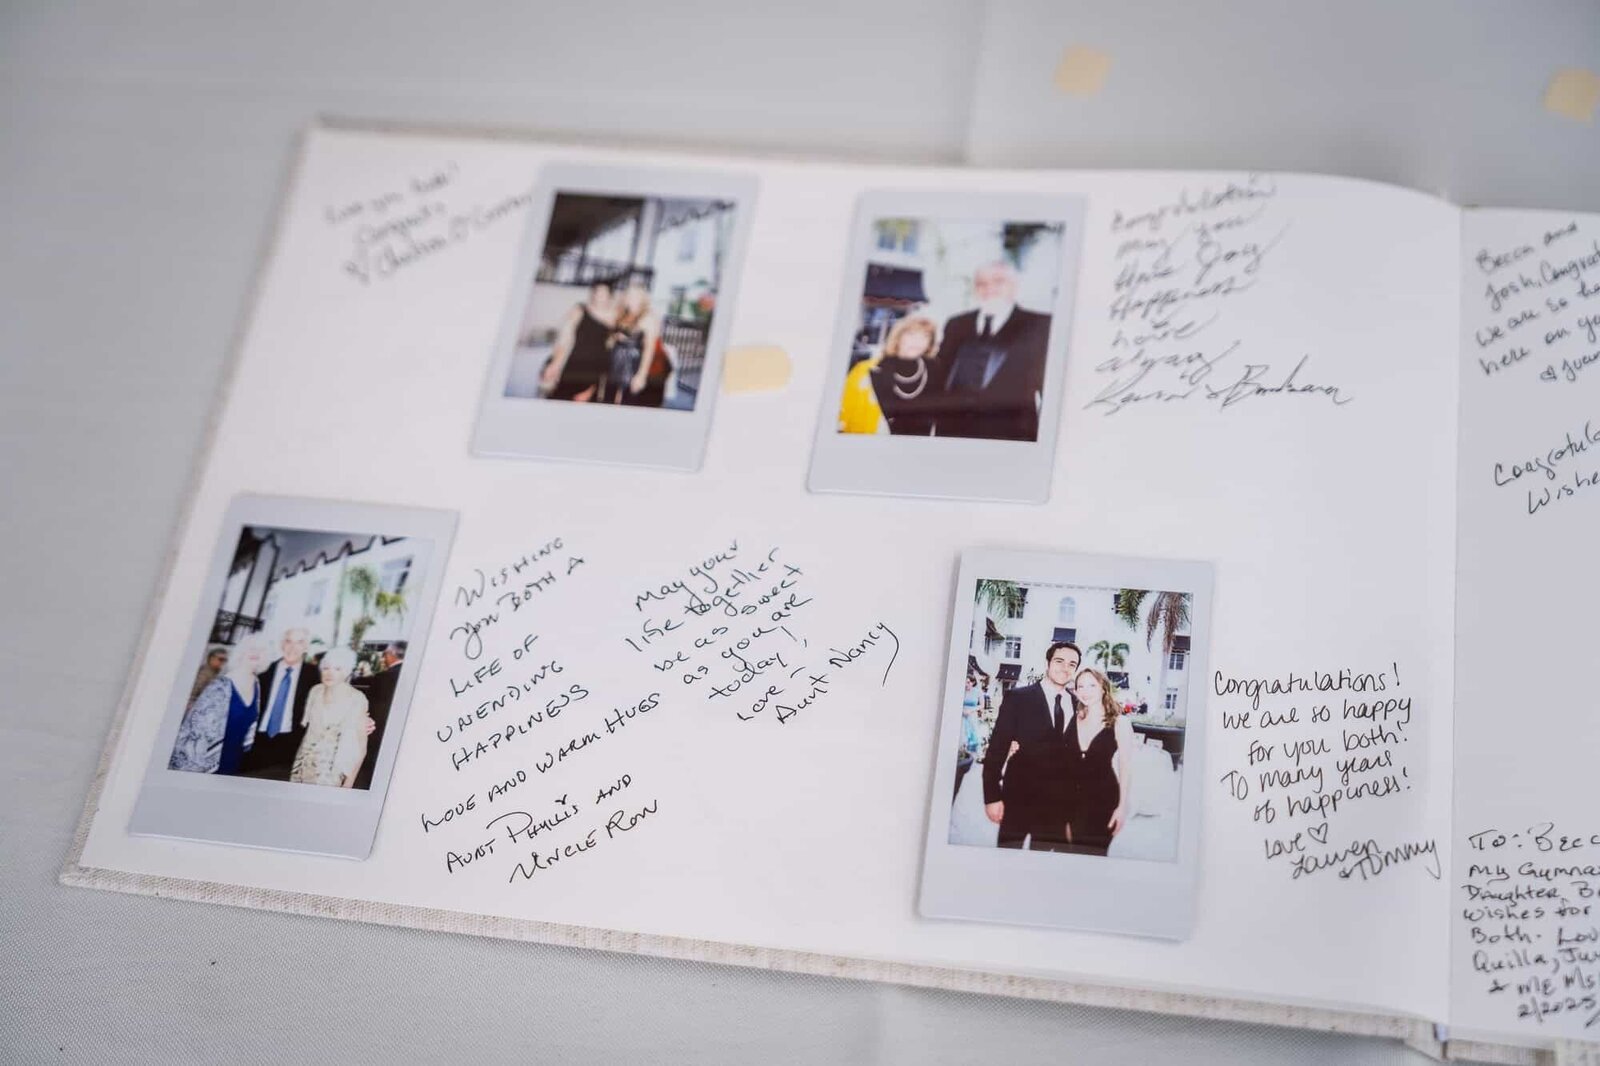 Love you both!
Congrats
Christina O'
Congratulation
May you
Have Joy
Happiness
Love
always
Kevin & Barbara
WISHING
YOU BOTH A
LIFE OF
UNENDING
HAPPINESS
LOVE AND WARM HUGS
AUNT PHYLLIS AND
UNCLE RON
May your
life together
be as sweet
as you are
today!
Love -
Aunt Nancy
Congratulations!
We are so happy
for you both!
To many years
of happiness!
Love ♡
Lauren
& Tommy
Becca and
Josh, Congrat
We are so ha
here on yo
Congratula
Wishe
To: Becc
My Gymna
Daughter, B
Wishes for
Both. Lov
Quilla, Ju
& Me Ms
2/2025